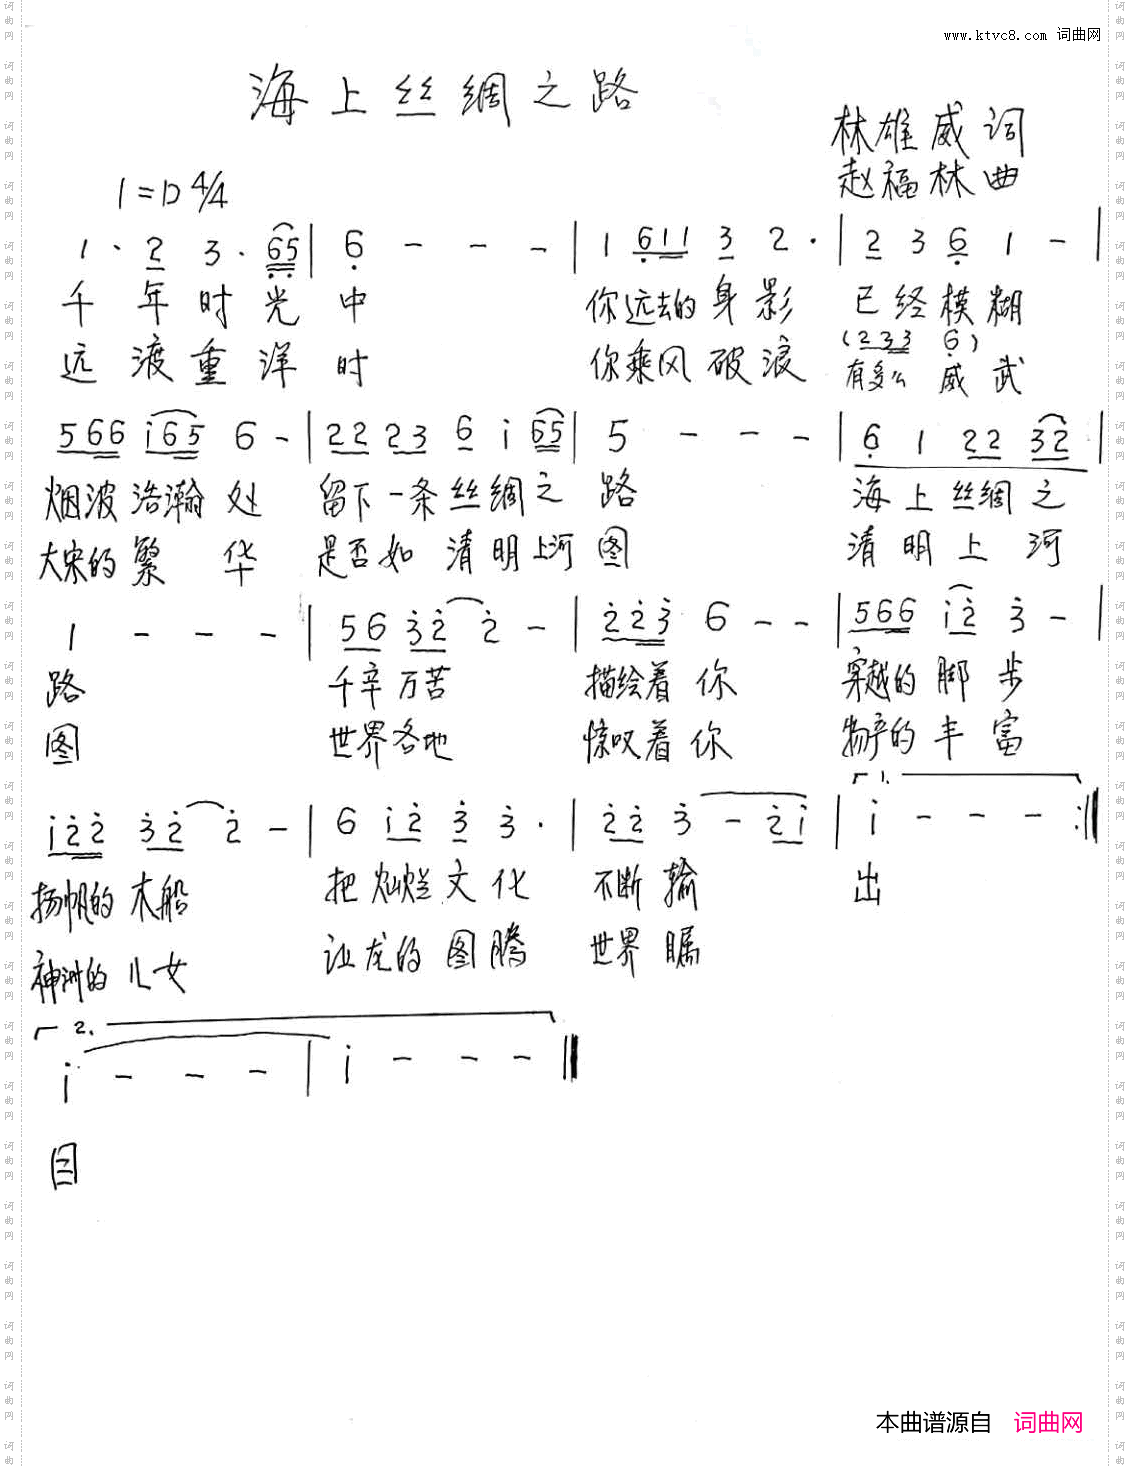 www.ktvc8.com 词曲网
海上丝绸之路
林雄威词
赵福林曲
1=D 4/4
1· 2 3· 65 | 6 - - - | 1 611 3 2· | 2 3 6 1 - |
千年时光中 你远去的身影 已经模糊
(233 6)
远渡重洋时 你乘风破浪 有多么威武
566 i65 6 - | 22 23 6 i 65 | 5 - - - | 6 1 22 32 |
烟波浩瀚处 留下一条丝绸之路 海上丝绸之
大宋的繁华 是否如清明上河图 清明上河
1 - - - | 56 32 2 - | 223 6 - - | 566 i2 3 - |
路 千辛万苦 描绘着你 穿越的脚步
图 世界各地 惊叹着你 物产的丰富
1.
i22 32 2 - | 6 i2 3 3· | 22 3 - 2i | i - - - :||
扬帆的木船 把灿烂文化 不断输出
神州的儿女 让龙的图腾 世界瞩
2.
i - - - | i - - - ||
目
本曲谱源自 词曲网